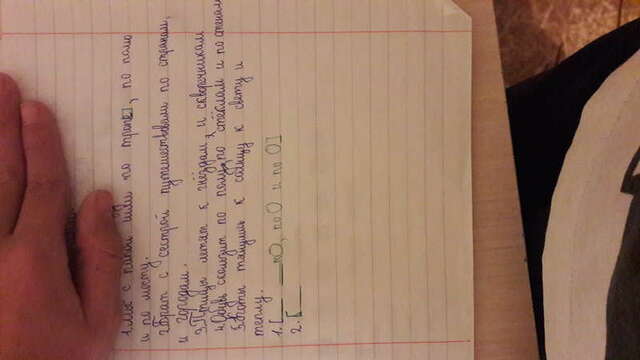 1. Мы с папой шли по тропе, по полю
и по мосту.
2. Брат с сестрой путешествовали по странам,
и городам.
3. Птицы летят к гнёздам, и скворечникам
4. Обувь скользит по полу, по стёклам и по стенам
5. Коты тянулись к солнцу к свету и
теплу.
1. [ по О, по О и по О]
2. [